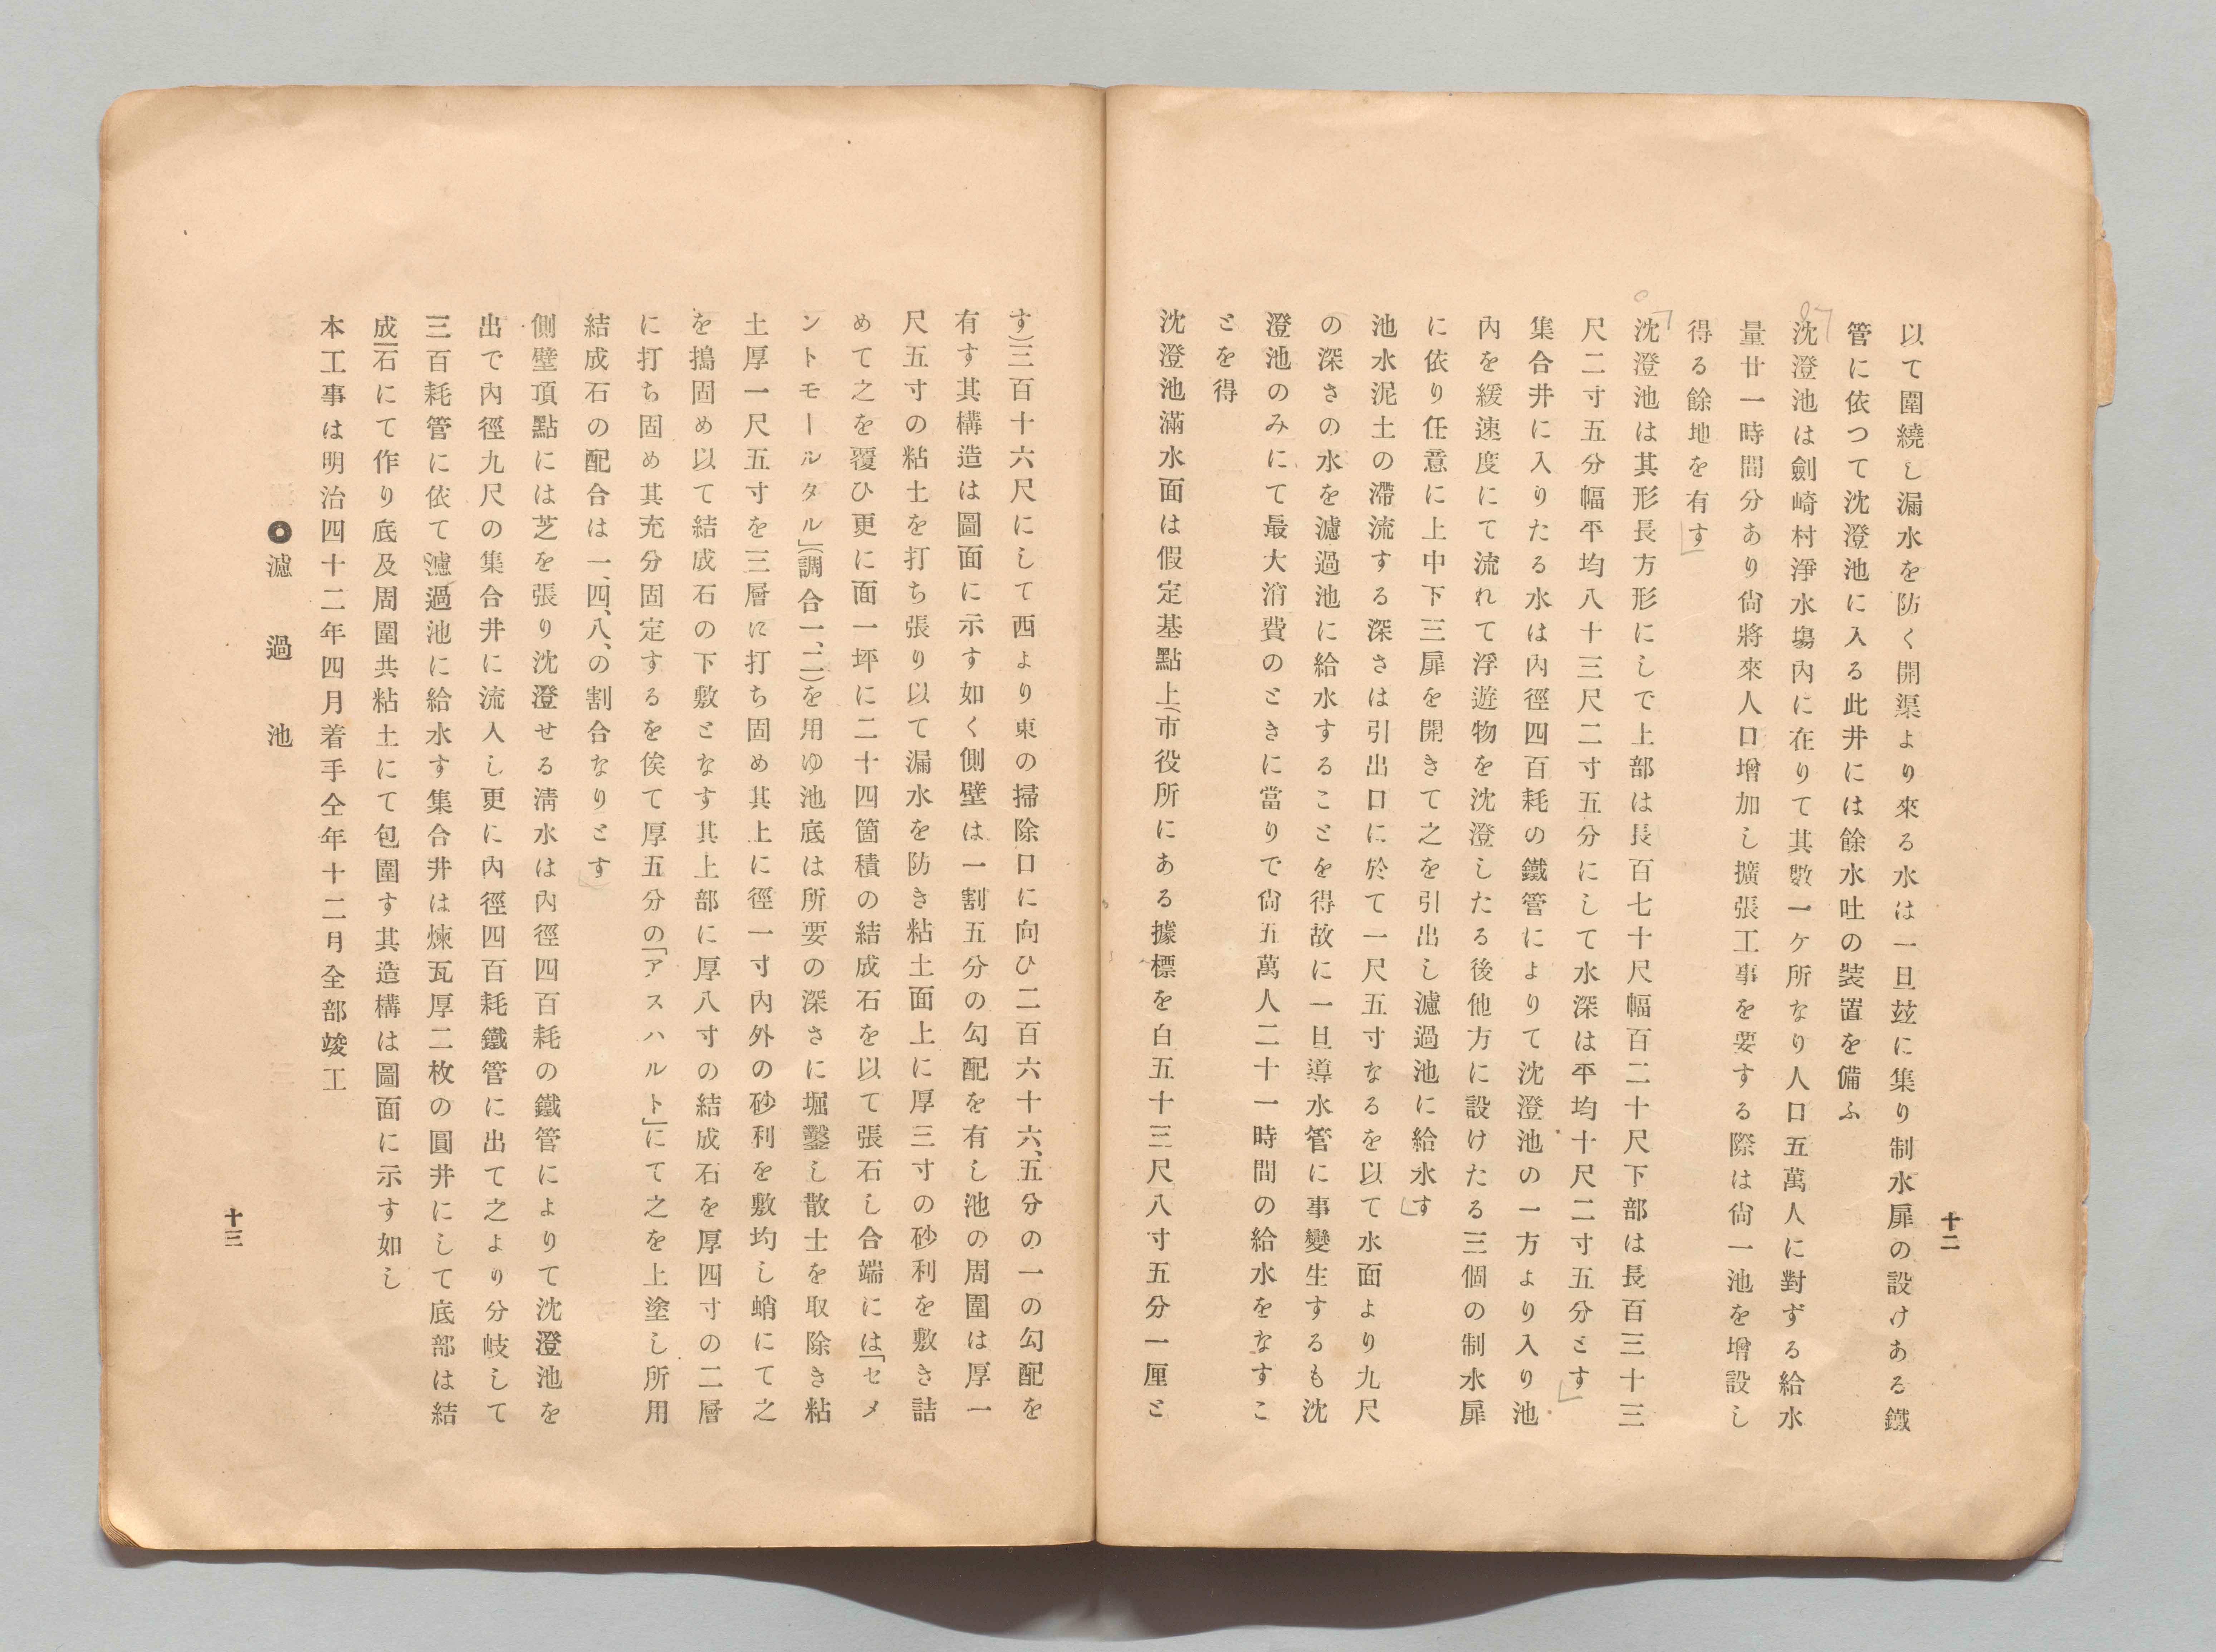 十二
以て圍繞し漏水を防く開渠より來る水は一旦玆に集り制水扉の設けある鐵
管に依つて沈澄池に入る此井には餘水吐の装置を備ふ
沈澄池は劍崎村淨水塲內に在りて其數一ケ所なり人口五萬人に對ずる給水
量廿一時間分あり尙將來人口增加し擴張工事を要する際は尙一池を增設し
得る餘地を有す
沈澄池は其形長方形にしで上部は長百七十尺幅百二十尺下部は長百三十三
尺二寸五分幅平均八十三尺二寸五分にして水深は平均十尺二寸五分とす
集合井に入りたる水は內徑四百耗の鐵管によりて沈澄池の一方より入り池
內を緩速度にて流れて浮遊物を沈澄したる後他方に設けたる三個の制水扉
に依り任意に上中下三扉を開きて之を引出し濾過池に給水す
池水泥土の滯流する深さは引出口に於て一尺五寸なるを以て水面より九尺
の深さの水を濾過池に給水することを得故に一旦導水管に事變生するも沈
澄池のみにて最大消費のときに當りで尙五萬人二十一時間の給水をなすこ
とを得
沈澄池滿水面は假定基點上(市役所にある據標を白五十三尺八寸五分一厘と
す)三百十六尺にして西より東の掃除口に向ひ二百六十六、五分の一の勾配を
有す其構造は圖面に示す如く側壁は一割五分の勾配を有し池の周圍は厚一
尺五寸の粘土を打ち張り以て漏水を防き粘土面上に厚三寸の砂利を敷き詰
めて之を覆ひ更に面一坪に二十四箇積の結成石を以て張石し合端には「セメ
ントモールタル」(調合一、二)を用ゆ池底は所要の深さに堀鑿し散土を取除き粘
土厚一尺五寸を三層に打ち固め其上に徑一寸內外の砂利を敷均し蛸にて之
を搗固め以て結成石の下敷となす其上部に厚八寸の結成石を厚四寸の二層
に打ち固め其充分固定するを俟て厚五分の「アスハルト」にて之を上塗し所用
結成石の配合は一、四、八、の割合なりとす
側壁頂點には芝を張り沈澄せる淸水は內徑四百耗の鐵管によりて沈澄池を
出で內徑九尺の集合井に流人し更に內徑四百耗鐵管に出て之より分岐して
三百耗管に依て濾過池に給水す集合井は煉瓦厚二枚の圓井にして底部は結
成石にて作り底及周圍共粘土にて包圍す其造構は圖面に示す如し
本工事は明治四十二年四月着手仝年十二月全部竣工
◎濾過池
十三